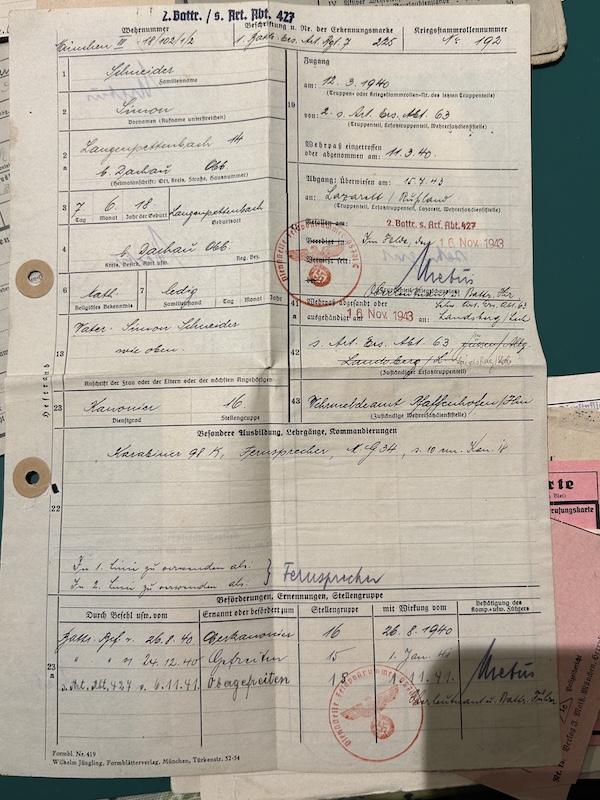 2. Battr. / s. Art. Abt. 427
Wehrnummer
München III - 18/102/1/2
Beschriftung u. Nr. der Erkennungsmarke
1. Battr. Ers. Art. Rgt. 7 225
Kriegsstammrollennummer
Nr. 192
1 Schneider
Familienname
2 Simon
Vornamen (Rufname unterstreichen)
2a Langenpettenbach 14
b. Dachau Obb
(Heimatanschrift: Ort, Kreis, Straße, Hausnummer)
3 7 6. 18. Langenpettenbach
Tag Monat Jahr der Geburt Geburtsort
4 b. Dachau Obb.
Kreis, Bezirk, Reg. Bez.
6 kath 7 ledig
Religiöses Bekenntnis Familienstand Tag Monat Jahr
13 Vater: Simon Schneider
wie oben.
Anschrift der Frau oder der Eltern oder der nächsten Angehörigen
23 Kanonier 16
Dienstgrad Stellengruppe
19 Zugang
am: 12. 3. 1940
(Truppen- oder Kriegsstammrollen-Nr. des letzten Truppenteils)
von: 2. s. Art. Ers. Abt. 63
(Truppenteil, Ersatztruppenteil, Wehrersatzdienststelle)
Wehrpaß eingetroffen
oder abgenommen am: 11. 3. 40
Abgang: Überwiesen am: 15. 7. 43
an: Lazarett / Rußland
(Truppenteil, Ersatztruppenteil, Lazarett, Wehrersatzdienststelle)
Gefallen am: 2. Battr. s. Art. Abt. 427
Beerdigt Im Felde, den 16. Nov. 1943
Vermißt seit:
Oberleutnant u. Battr. Fhr.
41 Wehrpaß abgesandt oder
ausgehändigt am 16. Nov. 1943 an: Landsberg / Lech
42 s. Art. Ers. Abt. 63
Landsberg / L
(Zuständiger Ersatztruppenteil)
43 Wehrmeldeamt Pfaffenhofen / Ilm
(Zuständige Wehrersatzdienststelle)
Heftrand
Besondere Ausbildung, Lehrgänge, Kommandierungen
Karabiner 98 K, Fernsprecher, M G 34, s. 10 cm. Kan. 18
22
In 1. Linie zu verwenden als:
In 2. Linie zu verwenden als: } Fernsprecher
Beförderungen, Ernennungen, Stellengruppe
Durch Befehl usw. vom Ernannt oder befördert zum Stellengruppe mit Wirkung vom Bestätigung des Komp.- usw. Führers
Battr. Bef v. 26. 8. 40 Oberkanonier 16 26. 8. 1940
23a " " v. 24. 12. 40 Gefreiten 15 1. Jan.
s. Art. Abt. 427 v. 6. 11. 41. Obergefreiten 18 1. 11. 41.
Oberleutnant u. Battr. Führer
Formbl. Nr. 419
Wilhelm Jüngling, Formblätterverlag, München, Türkenstr. 52-54